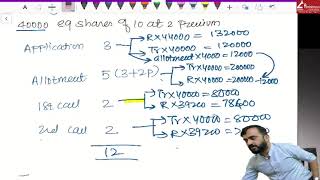 40000 eq shares of 10 at 2 Premium
Application 3 R×44000 = 132000
Tr×40000 = 120000
allotment×4000 = 12000
Allotment 5 (3+2P) Tr×40000 = 200000
R×40000 = 200000-12000
1st call 2 Tr×40000 = 80000
R×39200 = 78400
2nd call 2 Tr×40000 = 80000
R×39200 =
12